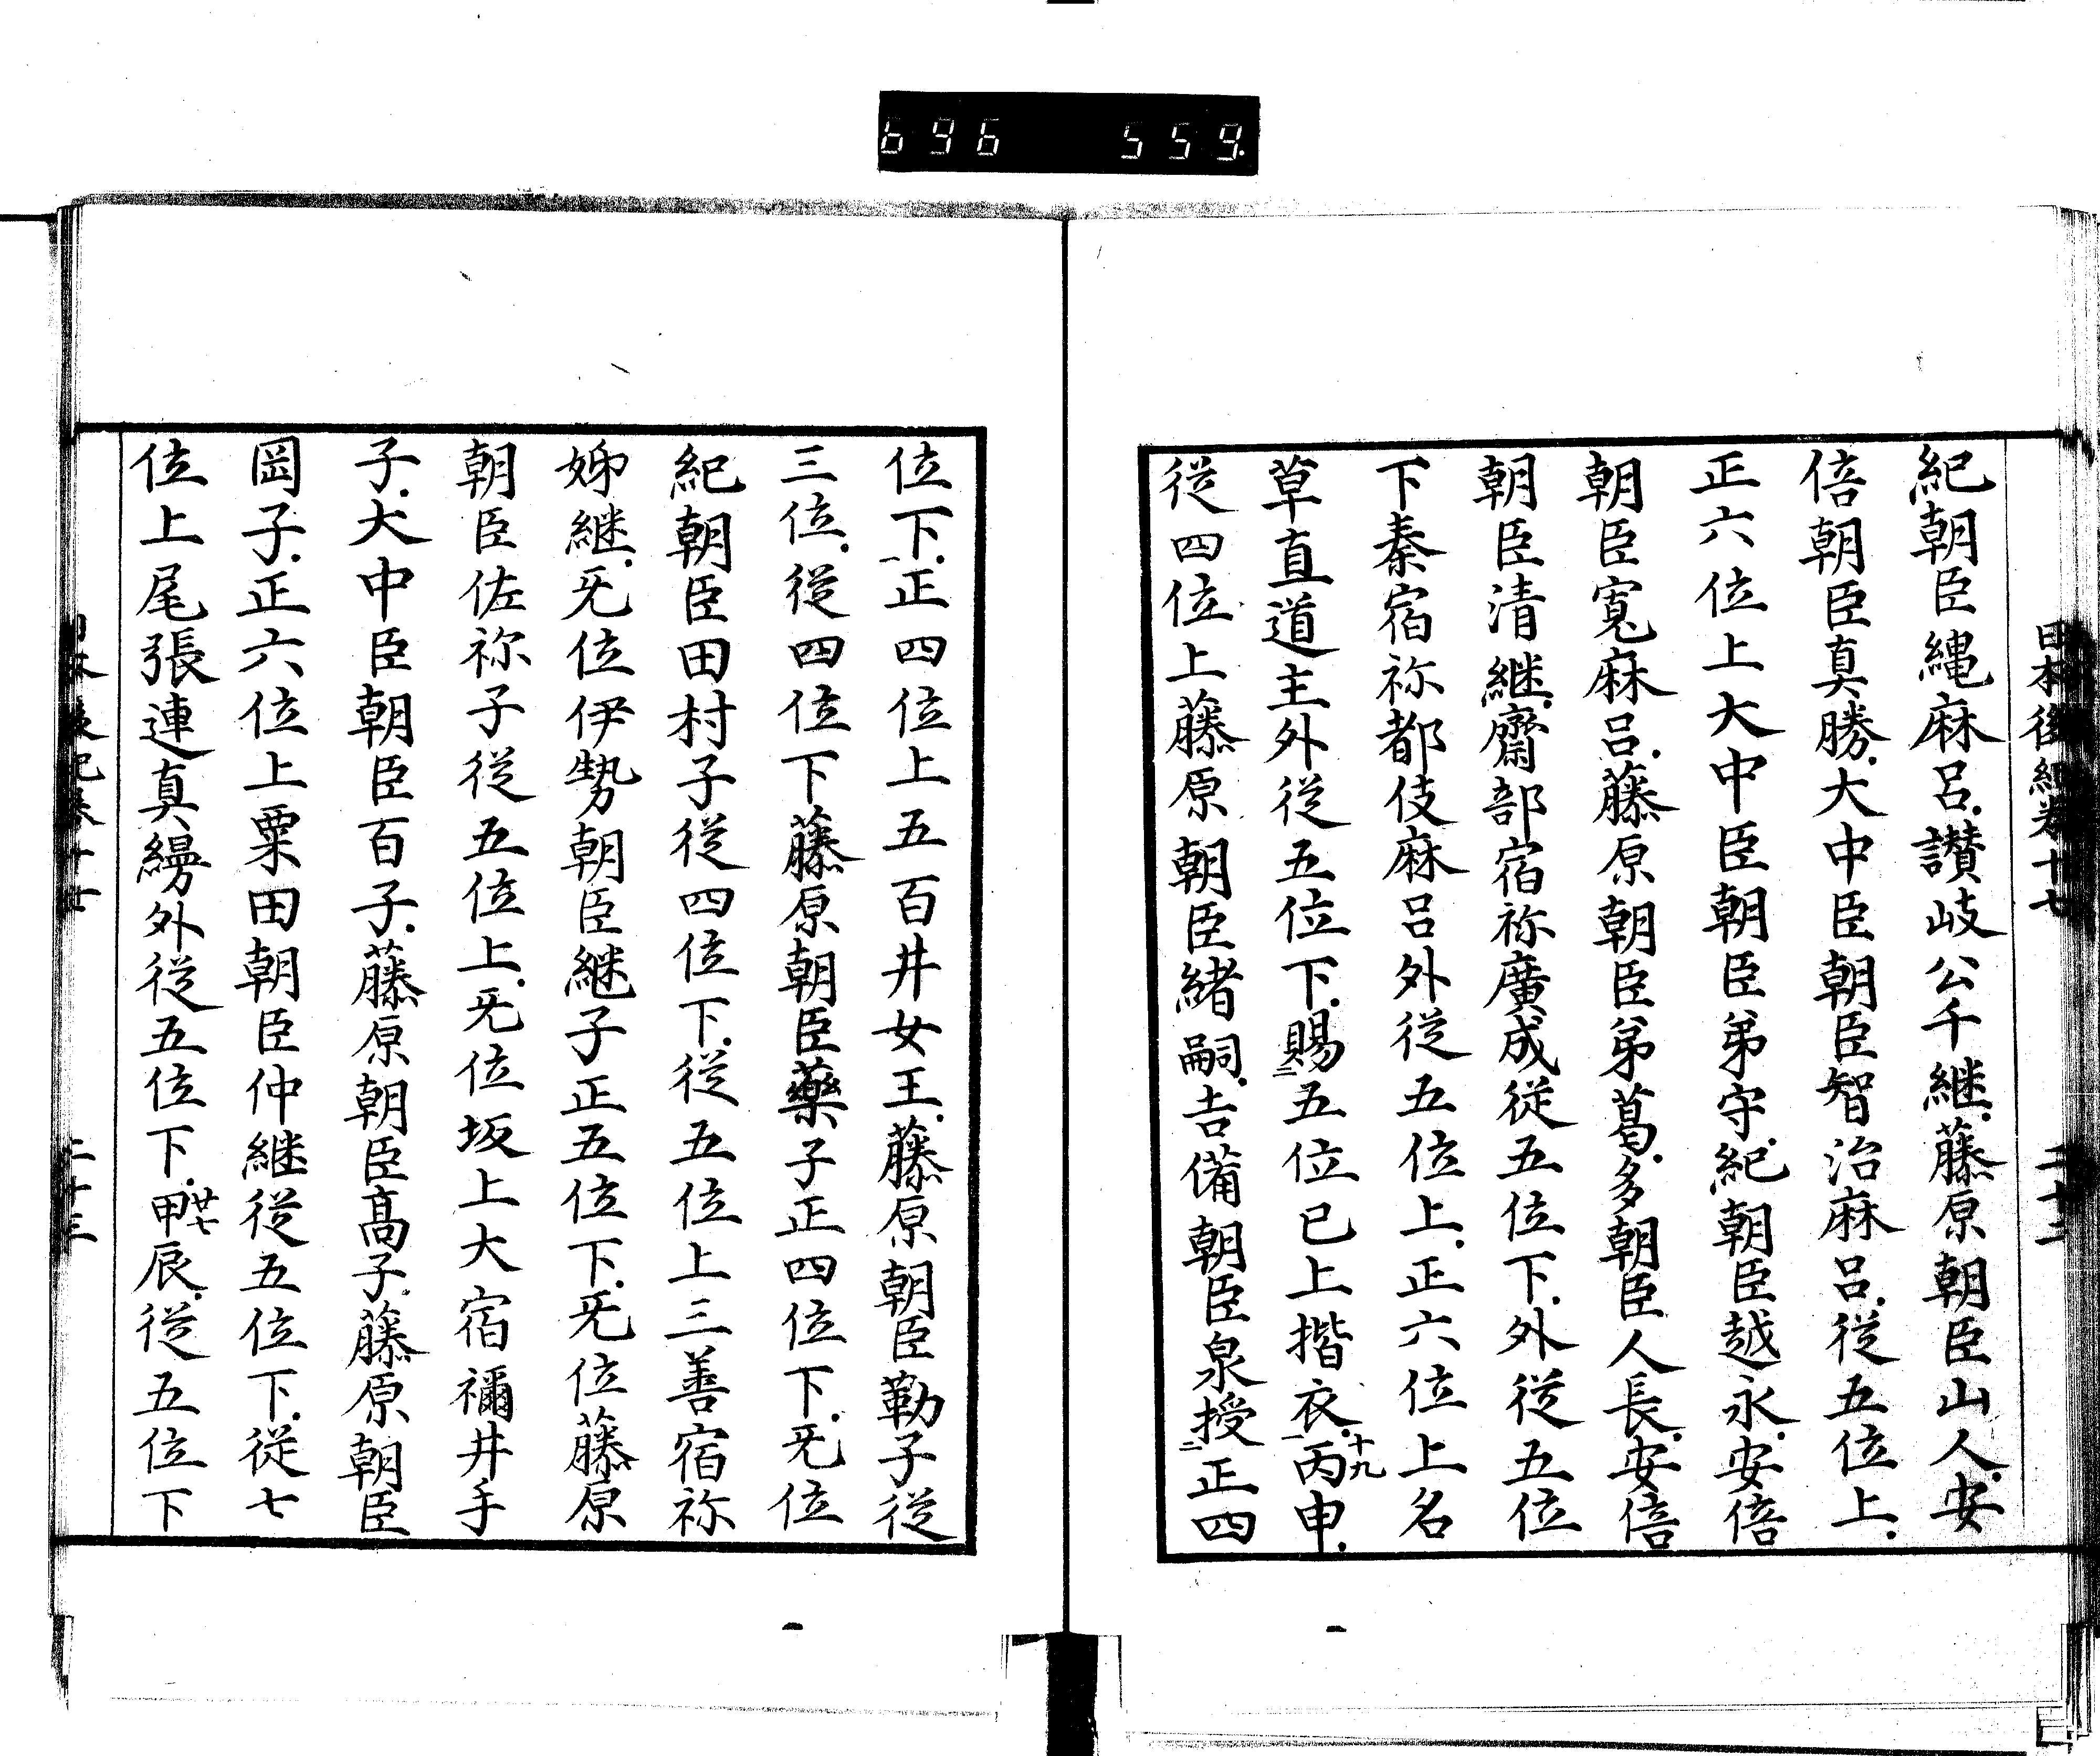 696 559
日本後紀卷十七 二十二
紀朝臣繩麻呂讃岐公千継藤原朝臣山人安
倍朝臣真勝大中臣朝臣智治麻呂從五位上
正六位上大中臣朝臣弟守紀朝臣越永安倍
朝臣寬麻呂藤原朝臣弟葛多朝臣人長安倍
朝臣清継齋部宿祢廣成従五位下外從五位
下秦宿祢都伎麻呂外從五位上正六位上名
草直道主外從五位下賜二五位已上揩衣一十九丙申
從四位上藤原朝臣緒嗣吉備朝臣泉授二正四
位下一正四位上五百井女王藤原朝臣勒子從
三位從四位下藤原朝臣藥子正四位下旡位
紀朝臣田村子從四位下從五位上三善宿祢
姉継旡位伊勢朝臣継子正五位下旡位藤原
朝臣佐祢子從五位上旡位坂上大宿禰井手
子大中臣朝臣百子藤原朝臣髙子藤原朝臣
岡子正六位上粟田朝臣仲継從五位下従七
位上尾張連真縵外從五位下廿七甲辰從五位下
後紀卷十七 二十三